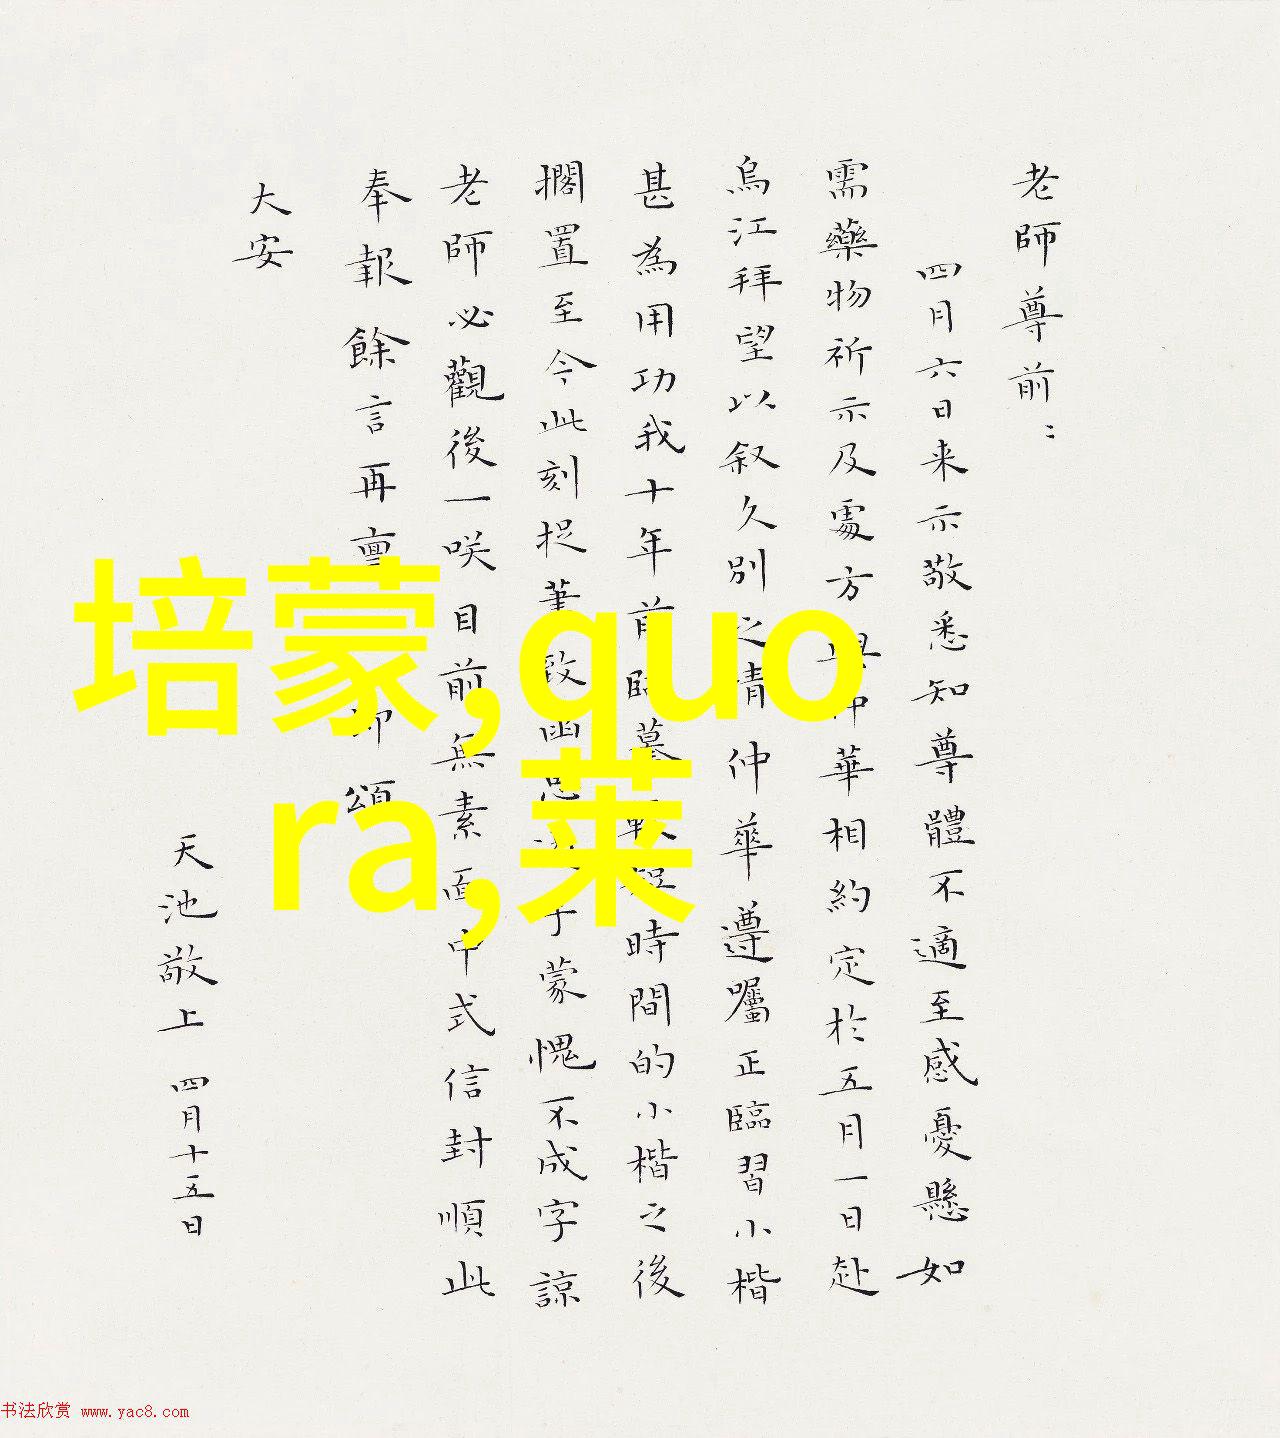 老師尊前：
四月六日来示敬悉知尊體不適至感憂懸如
需藥物祈示及處方與仲華相約定於五月一日赴
烏江拜望以叙久別之情仲華遵囑正臨習小楷
甚為用功我十年前臨摹較短時間的小楷之後
擱置至今此刻捉筆致乎蒙愧不成字諒
老師必觀後一咲目前無素面中式信封順此
奉報餘言再即頌
大安
天池敬上 四月十五日
培蒙,quo
ra,莱
书法欣赏 www.yac8.com